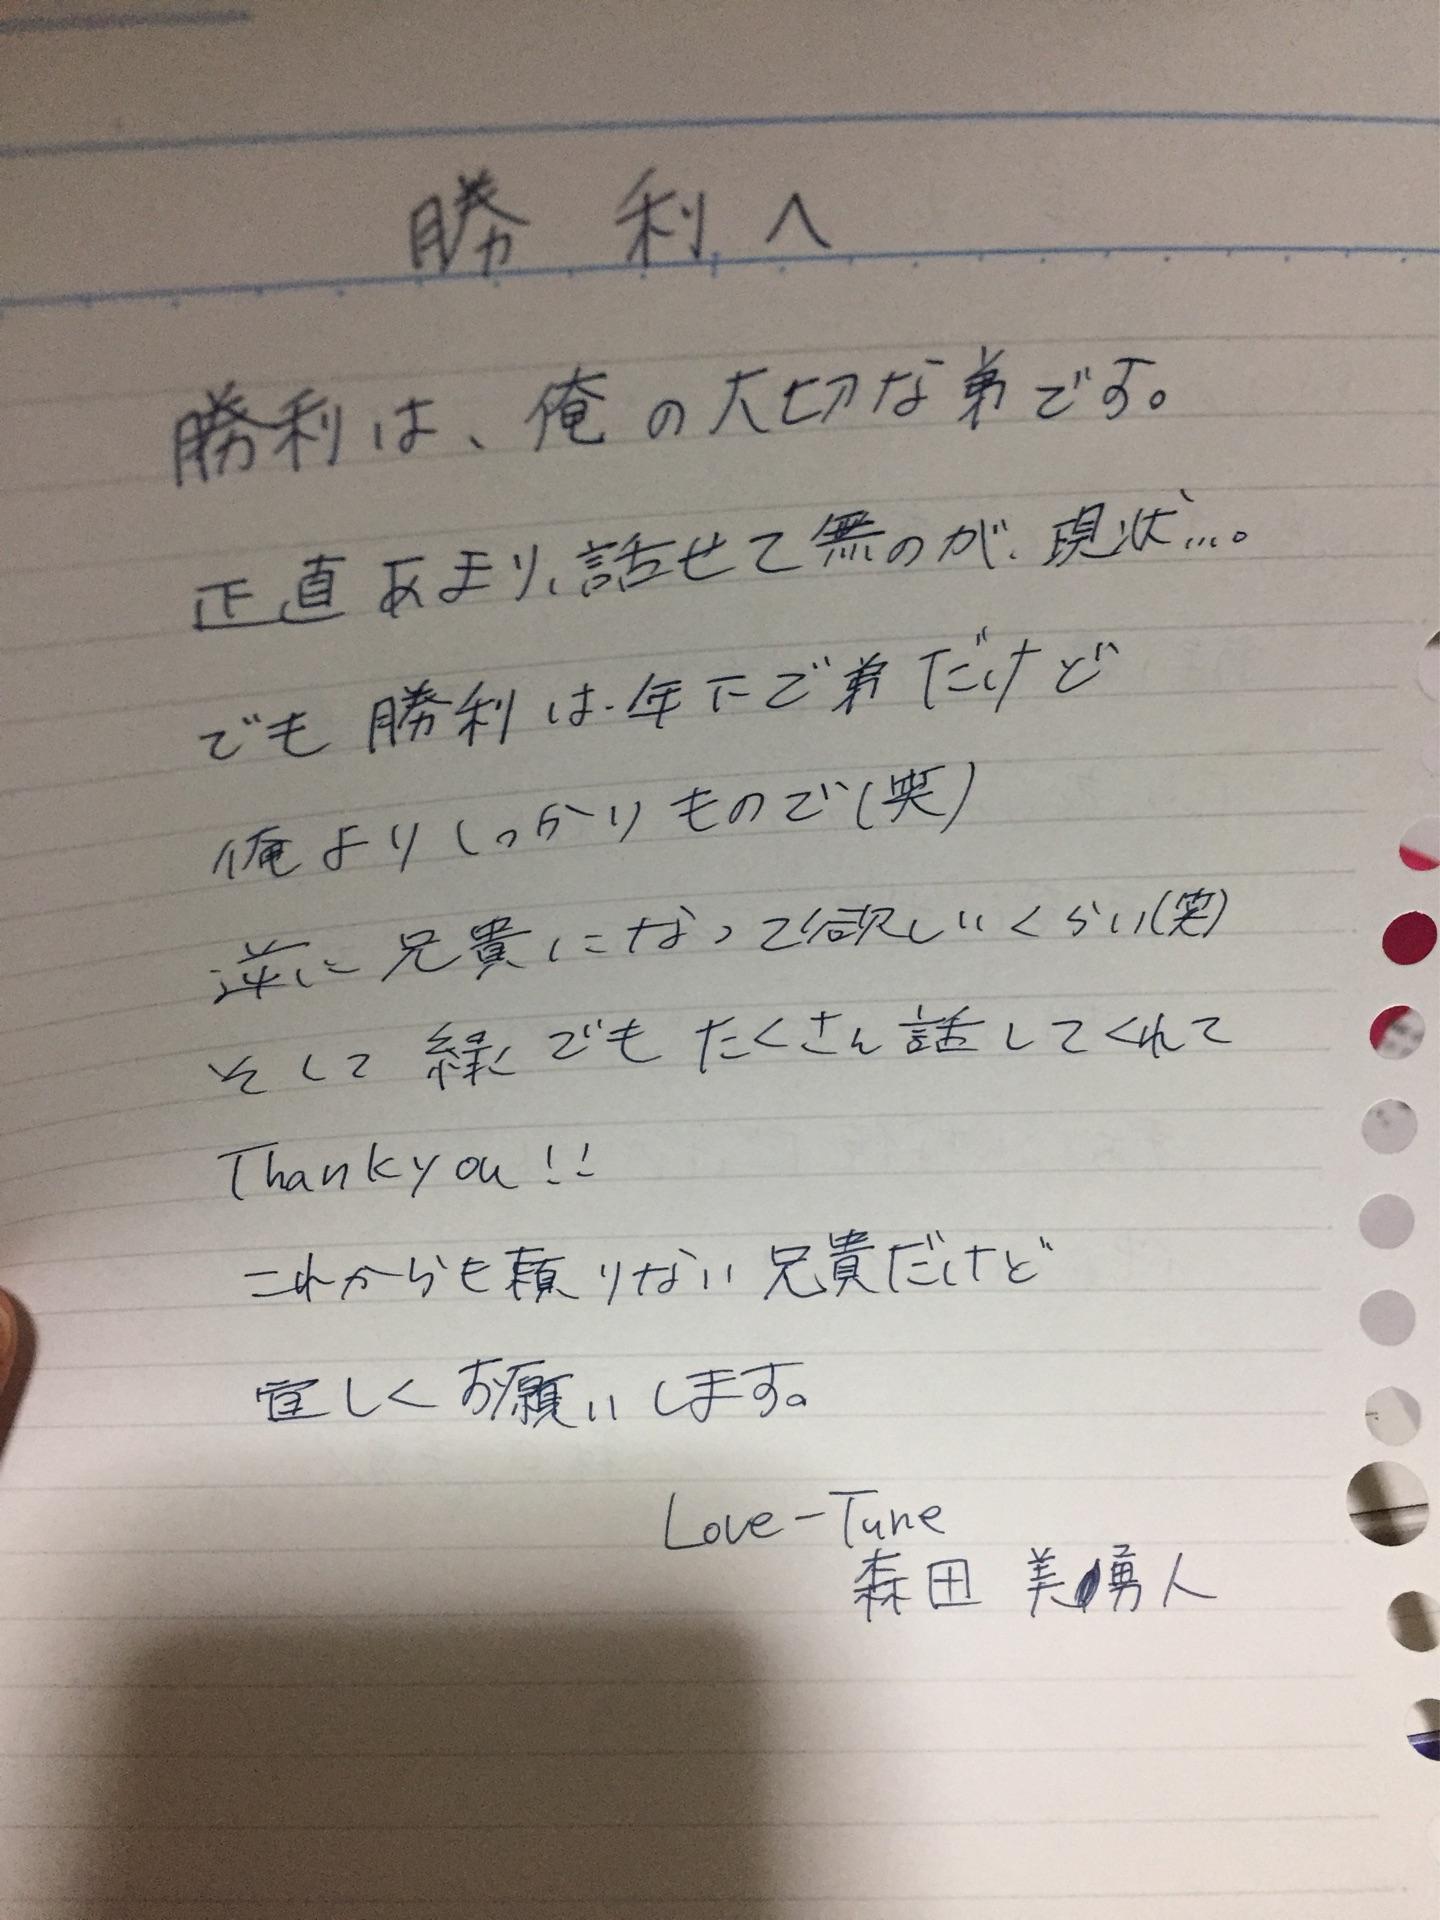 勝利へ
勝利は、俺の大切な弟です。
正直あまり、話せて無のが、現状…。
でも勝利は、年下で弟だけど
俺よりしっかりもので(笑)
逆に兄貴になって欲しいくらい(笑)
そして緑でもたくさん話してくれて
Thank you!!
これからも頼りない兄貴だけど
宜しくお願いします。
Love-Tune
森田 美勇人